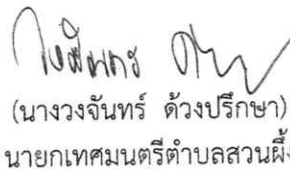 (นางวงจันทร์ ด้วงปรึกษา)
นายกเทศมนตรีตำบลสวนผึ้ง